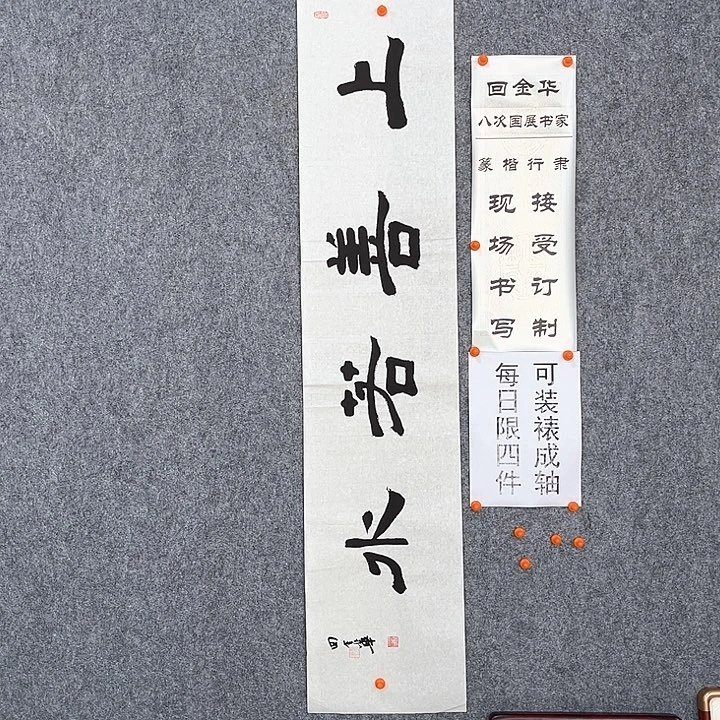 上善若水
回金華
回金华
八次国展书家
篆楷行隶
接受订制
现场书写
可装裱成轴
每日限四件